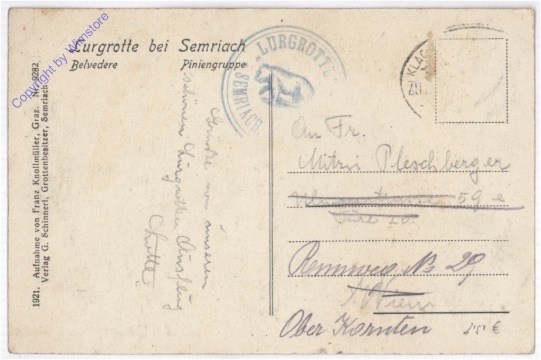 Lurgrotte bei Semriach
Belvedere Piniengruppe
Copyright by Winstore
1921. Aufnahme von Franz Knollmüller, Graz. Nr. 9282
Verlag G. Schinnerl, Grottenbesitzer, Semriach
LURGROTTE
SEMRIACH
KLAG
unserem
schönen Lurgrotten Ausflug
Lotte
An Fr.
Mitzi Pleschberger
59
Rennweg No 29
Wien
Ober Kärnten